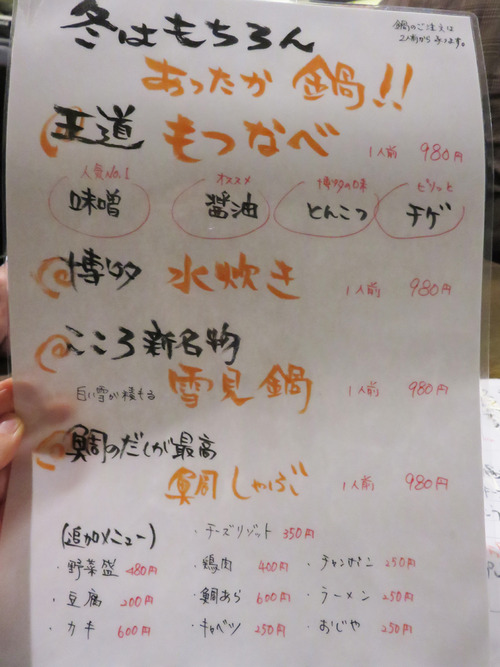 冬はもちろん
鍋のご注文は
2人前から承ります。
あったか 鍋!!
王道 もつなべ 1人前 980円
人気No.1 オススメ 博多の味 ピリッと
味噌 醤油 とんこつ チゲ
博多 水炊き 1人前 980円
こころ新名物
白い雪が積もる 雪見鍋 1人前 980円
鯛のだしが最高
鯛しゃぶ 1人前 980円
(追加メニュー) ・チーズリゾット 350円
・野菜盛 480円 ・鶏肉 400円 ・チャンポン 250円
・豆腐 200円 ・鯛あら 600円 ・ラーメン 250円
・カキ 600円 ・キャベツ 250円 ・おじや 250円